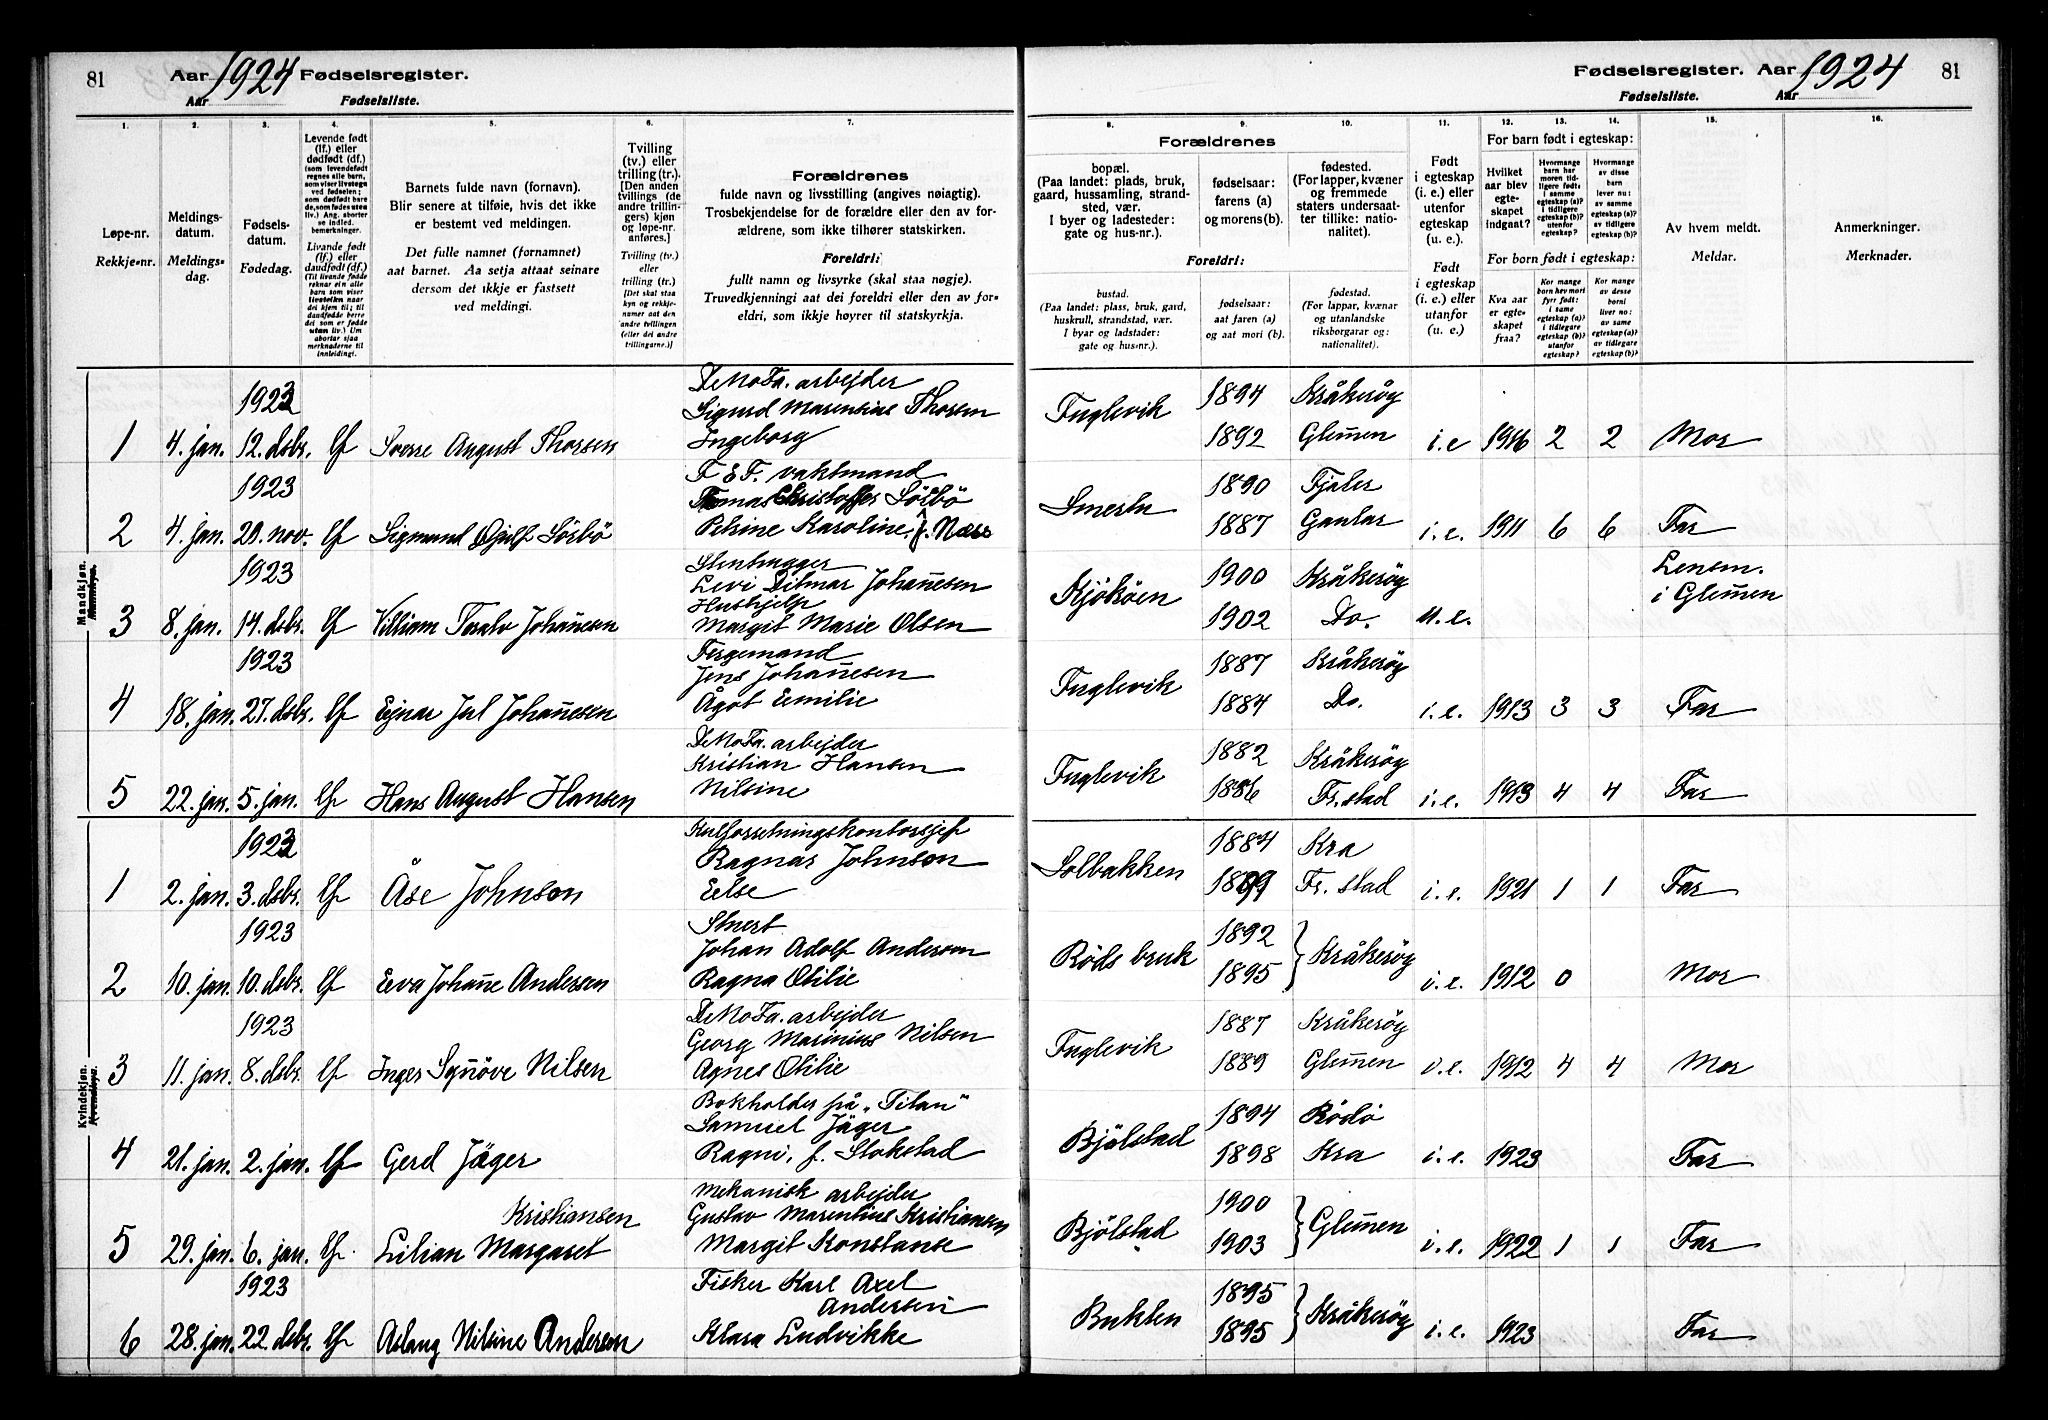 81 Aar 1924 Fødselsregister.
Aar Fødselsliste.
Fødselsregister. Aar 1924 81
Fødselsliste. Aar
1. 2. 3. 4. 5. 6. 7.
Løpe-nr.
Rekkje-nr.
Meldings-
datum.
Meldings-
dag.
Fødsels-
datum.
Fødedag.
Levende født
(lf.) eller
dødfødt (df.)
(som levendefødt
regnes alle barn,
som viser livstegn
ved fødselen;
som dødfødt bare
de, som fødes uten
liv.) Ang. aborter
se indled.
bemerkninger.
Livande født
(lf.) eller
daudfødt (df.)
(Til livande fødde
reknar ein alle
born som viser
livsteikn når
dei kjem til;
til daudfødde berre
dei som er fødde
utan liv.) Um
abortar sjaa
merknaderne til
innleidingi.
Barnets fulde navn (fornavn).
Blir senere at tilføie, hvis det ikke
er bestemt ved meldingen.
Det fulle namnet (fornamnet)
aat barnet. Aa setja attaat seinare
dersom det ikkje er fastsett
ved meldingi.
Tvilling
(tv.) eller
trilling (tr.).
[Den anden
tvillings (de
andre trillin-
gers) kjøn
og løpe-nr.
anføres.]
Tvilling (tv.)
eller
trilling (tr.)
[Det skal staa
kyn og rekkje-
numer aat den
andre tvillingen
(eller dei andre
trillingarne.)]
Forældrenes
fulde navn og livsstilling (angives nøiagtig).
Trosbekjendelse for de forældre eller den av for-
ældrene, som ikke tilhører statskirken.
Foreldri:
fullt namn og livsyrke (skal staa nøgje).
Truvedkjenningi aat dei foreldri eller den av for-
eldri, som ikkje høyrer til statskyrkja.
8. 9. 10. 11. 12. 13. 14. 15. 16.
Forældrenes
bopæl.
(Paa landet: plads, bruk,
gaard, hussamling, strand-
sted, vær.
I byer og ladesteder:
gate og hus-nr.).
fødselsaar:
farens (a)
og morens (b).
fødested.
(For lapper, kvæner
og fremmede
staters undersaat-
ter tillike: natio-
nalitet).
Foreldri:
bustad.
(Paa landet: plass, bruk, gard,
huskrull, strandstad, vær.
I byar og ladstader:
gate og hus-nr.).
fødselsaar:
aat faren (a)
og aat mori (b).
fødestad.
(For lappar, kvænar
og utanlandske
riksborgarar og:
nationalitet).
Født
i egteskap
(i. e.) eller
utenfor
egteskap
(u. e.).
Født
i egteskap
(i. e.) eller
utanfor
(u. e.)
For barn født i egteskap:
Hvilket
aar blev
egte-
skapet
indgaat?
Hvormange
barn har
moren tid-
ligere født:
i samme
egteskap (a)?
i tidligere
egteskap (b)?
utenfor
egteskap?
Hvormange
av disse
barn
lever nu:
av samme
egteskap (a)?
av tidligere
egteskap (b)?
For born født i egteskap:
Kva aar
er egte-
skapet
fraa?
Kor mange
born hev mori
fyrr født:
i same
egteskap (a)?
i tidlegare
egteskap (b)?
utanfor
egteskap?
Kor mange
av desse
borni
liver no:
av same
egteskap (a)?
av tidlegare
egteskap (b)?
Av hvem meldt.
Meldar.
Anmerkninger.
Merknader.
Mandkjøn.
Mannkyn.
DeNoFa. arbejder
1923 Sigurd Marensius Thorsen Fuglevik 1894 Kråkerøy
1 4. jan. 12. dsbr. lf Sverre August Thorsen Ingeborg 1892 Glem̄en i.e 1916 2 2 Mor
F E F. vaktmand
1923 Tomas Kristoffer Sörbö Smertu 1890 Fjaler
2 4. jan. 29. nov. lf Sigmund Sörbö Petrine Karoline f. Næss 1887 Gaular i.e. 1911 6 6 Far
Stenhugger
1923 Levi Ditmar Johan̄esen Kjököen 1900 Kråkeröy Lensm.
Hushjelp i Glem̄en
3 8. jan. 14. dsbr. lf Villiam Toralv Johan̄esen Margit Marie Olsen 1902 Do. u.e.
1923 Fergemand
Jens Johan̄esen Fuglevik 1887 Kråkeröy
4 18. jan. 27. dsbr. lf Ejnar Jul Johan̄esen Ågot Emilie 1884 Do. i.e. 1913 3 3 Far
DeNoFa. arbejder
Kristian Hansen Fuglevik 1882 Kråkeröy
5 22. jan. 5. jan. lf Hans August Hansen Nilsine 1886 Fr.stad i.e. 1913 4 4 Far
Kvindekjøn.
Kvendkyn.
1923 Kulforretningskontorsjef
Ragnar Johnson Solbakken 1884 Kra
1 2. jan. 3. dsbr. lf Åse Johnson Else 1899 Fr. stad i.e. 1921 1 1 Far
1923 Stuert
Johan Adolf Andersen Röds bruk 1892 } Kråkeröy
2 10. jan. 10. dsbr. lf Eva Johan̄e Andersen Ragna Otilie 1895 i.e. 1912 0 Mor
1923 DeNoFa. arbejder
Georg Marinius Nilsen Fuglevik 1887 Kråkeröy
3 11. jan. 8. dsbr. lf Inger Syn̄öve Nilsen Agnes Otilie 1889 Glem̄en i.e. 1912 4 4 Mor
Bokholder på „Titan"
Samuel Jäger Bjölstad 1894 Rödö
4 21. jan. 2. jan. lf Gerd Jäger Ragni, f. Stokstad 1898 Kra i.e. 1923 Far
Mekanisk arbejder
Kristiansen Gustav Marentius Kristiansen Bjölstad 1900 } Glem̄en
5 29. jan. 6. jan. lf. Lilian Margaret Margit Konstanse 1903 i.e. 1922 1 1 Far
1923 Fisker Karl Axel
Andersen Bukten 1895 } Kråkeröy
6 28. jan. 22. dsbr. lf Aslaug Nilsine Andersen Klara Ludvikke 1895 i.e. 1923 Far